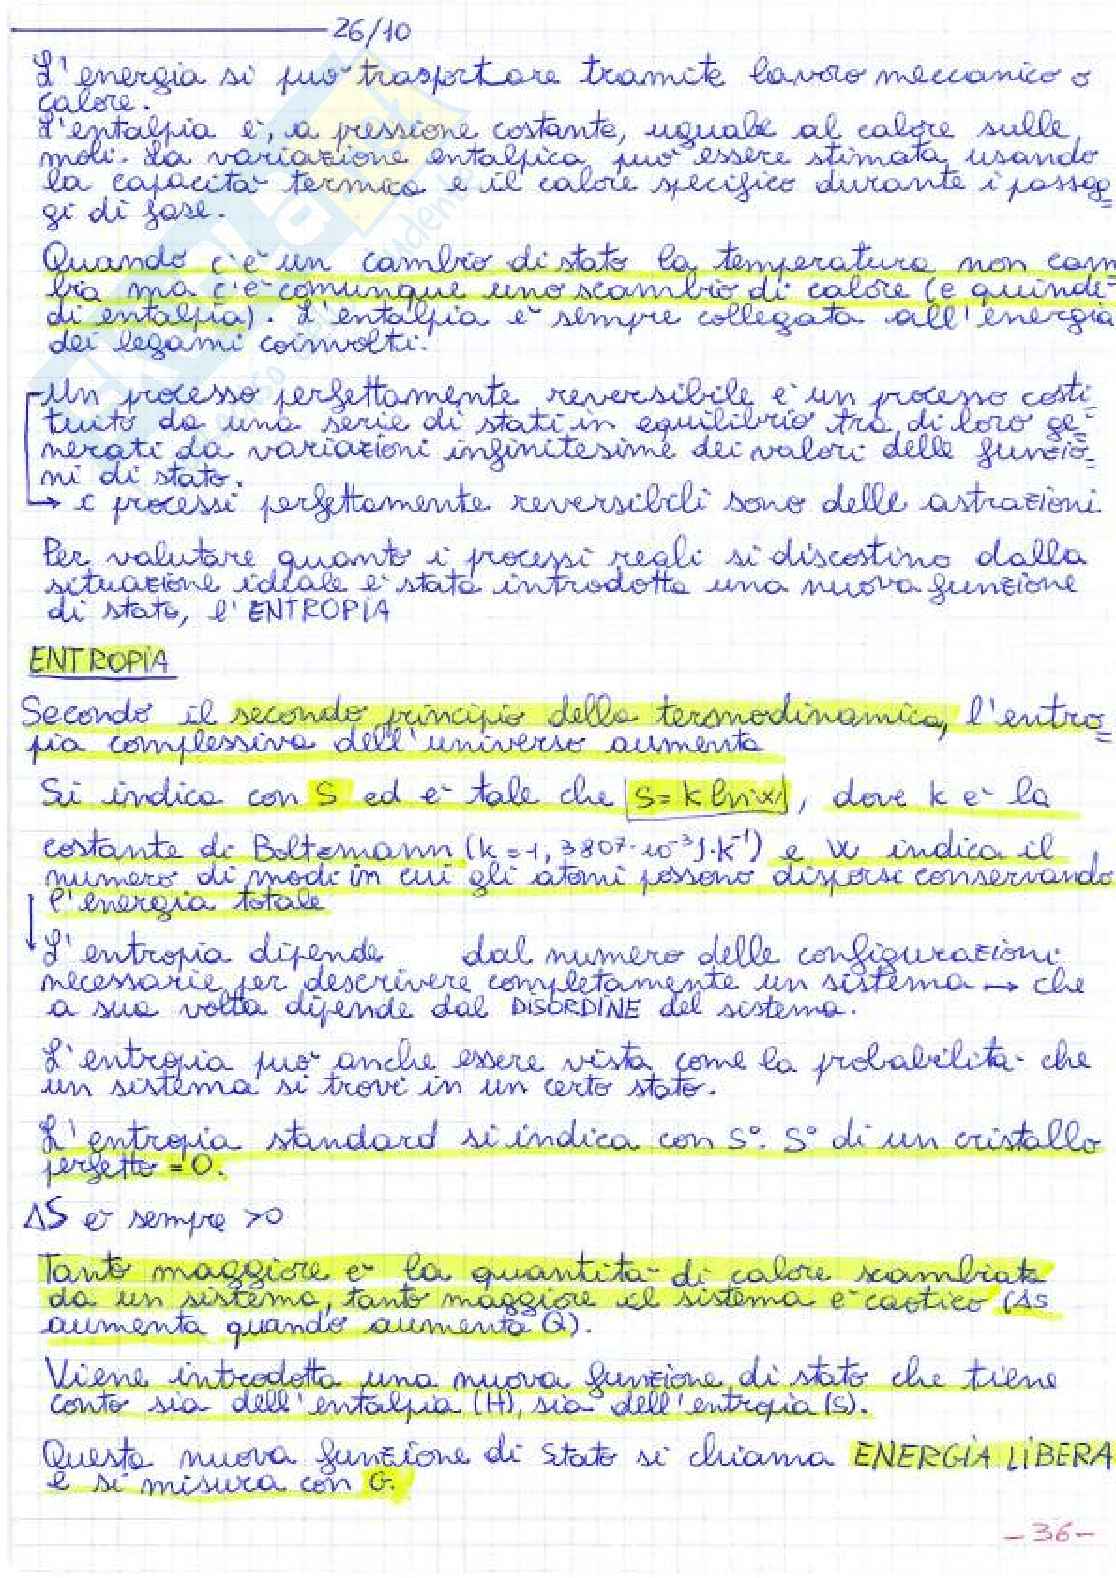 26/10
L'energia si può trasportare tramite lavoro meccanico o
calore.
L'entalpia è, a pressione costante, uguale al calore sulle
moli. La variazione entalpica può essere stimata usando
la capacità termica e il calore specifico durante i passag=
gi di fase.
Quando c'è un cambio di stato la temperatura non cam
bia ma c'è comunque uno scambio di calore (e quindi
di entalpia). L'entalpia è sempre collegata all'energia
dei legami coinvolti.
Un processo perfettamente reversibile è un processo costi=
tuito da una serie di stati in equilibrio tra di loro ge=
nerati da variazioni infinitesime dei valori delle funzio=
ni di stato.
→ i processi perfettamente reversibili sono delle astrazioni.
Per valutare quanto i processi reali si discostino dalla
situazione ideale è stata introdotta una nuova funzione
di stato, l'ENTROPIA
ENTROPIA
Secondo il secondo principio della termodinamica, l'entro=
pia complessiva dell'universo aumenta
Si indica con S ed è tale che S = k ln w, dove k è la
costante di Boltzmann (k = 1,3807·10⁻³J·k⁻¹) e w indica il
numero di modi in cui gli atomi possono disporsi conservando
l'energia totale
L'entropia dipende dal numero delle configurazioni
necessarie per descrivere completamente un sistema → che
a sua volta dipende dal DISORDINE del sistema.
L'entropia può anche essere vista come la probabilità che
un sistema si trovi in un certo stato.
L'entropia standard si indica con S°. S° di un cristallo
perfetto = 0.
ΔS è sempre >0
Tanto maggiore è la quantità di calore scambiata
da un sistema, tanto maggiore il sistema è caotico (ΔS
aumenta quando aumenta Q).
Viene introdotta una nuova funzione di stato che tiene
conto sia dell'entalpia (H), sia dell'entropia (S).
Questa nuova funzione di Stato si chiama ENERGIA LIBERA
e si misura con G.
-36-